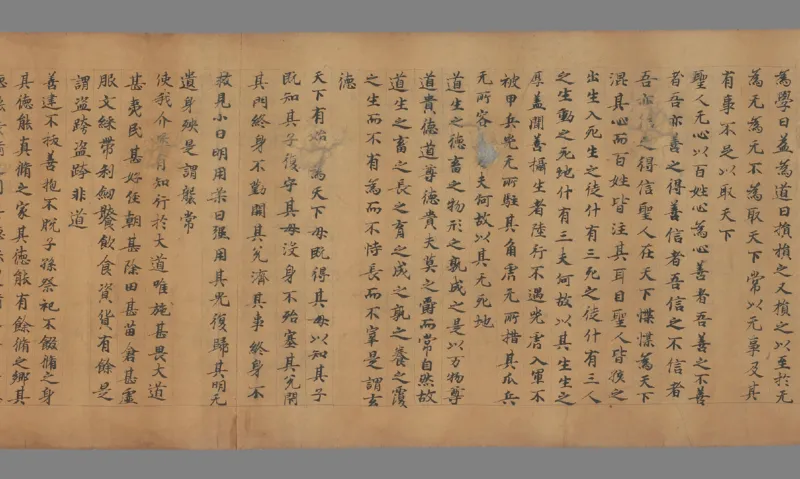 為學日益為道日損損之又損之以至於无
為无為无不為取天下常以无事及其
有事不足以取天下
聖人无心以百姓心為心善者吾善之不善
者吾亦善之得善信者吾信之不信者
吾亦信之得信聖人在天下惵惵為天下
混其心而百姓皆注其耳目聖人皆孩之
出生入死生之徒什有三死之徒什有三人
之生動之死地什有三夫何故以其生生之
厚盖聞善攝生者陸行不遇兕虎入軍不
被甲兵兕无所駐其角虎无所措其爪兵
无所容 夫何故以其无死地
道生之德畜之物形之孰成之是以万物尊
道貴德道尊德貴夫莫之爵而常自然故
道生之畜之長之育之成之孰之養之覆
之生而不有為而不恃長而不宰是謂玄
德
天下有始 為天下母既得其母以知其子
既知其子復守其母没身不殆塞其兌閇
其門終身不勤開其兌濟其事終身不
救見小曰明用柔曰强用其光復歸其明无
遺身殃是謂襲常
使我介然有知行於大道唯施甚畏大道
甚夷民甚好侄朝甚除田甚苗倉甚虛
服文綵帶利劒饜飲食資貨有餘是
謂盜跨盜跨非道
善建不拔善抱不脫子孫祭祀不餟脩之身
其德能真脩之家其德能有餘脩之鄉其